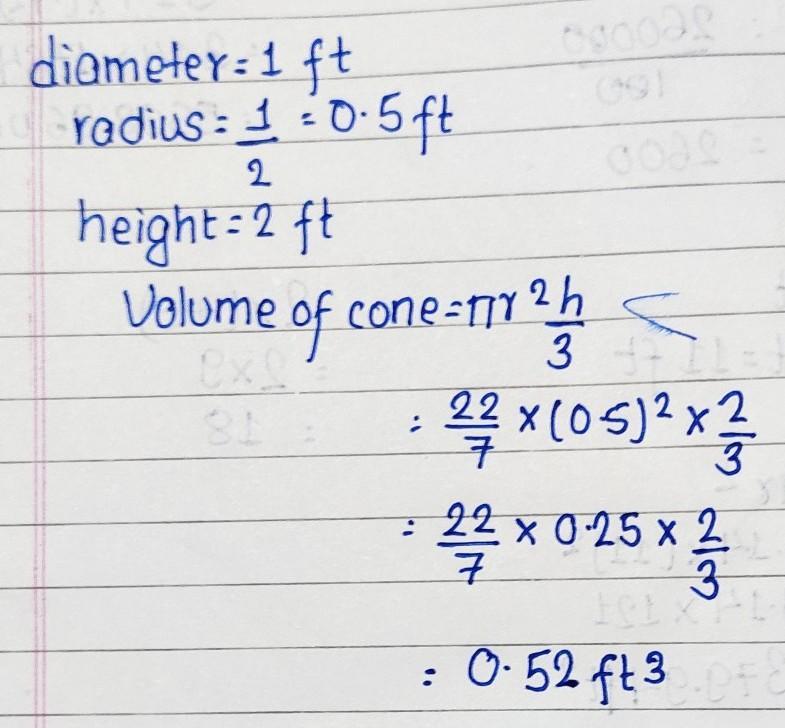 diameter = 1 ft
radius = 1/2 = 0.5 ft
height = 2 ft
Volume of cone = πr²h/3
= 22/7 × (0.5)² × 2/3
= 22/7 × 0.25 × 2/3
= 0.52 ft³